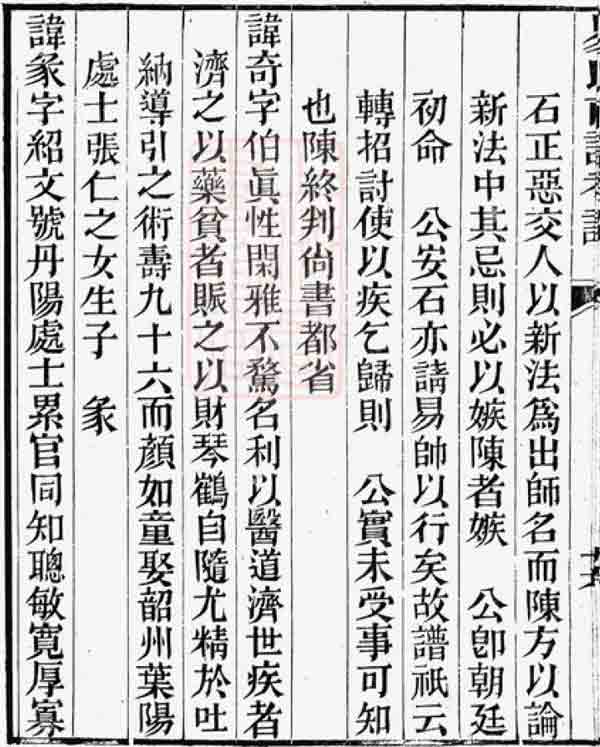 石正惡交人以新法爲出師名而陳方以論
新法中其忌則必以嫉陳者嫉　公卽朝廷
初命　公安石亦請易帥以行矣故譜祇云
轉招討使以疾乞歸則　公實未受事可知
也陳終判尙書都省
諱奇字伯眞性閑雅不騖名利以醫道濟世疾者
濟之以藥貧者賑之以財琴鶴自隨尤精於吐
納導引之術壽九十六而顏如童娶韶州葉陽
處士張仁之女生子　彖
諱彖字紹文號丹陽處士累官同知聰敏寬厚寡